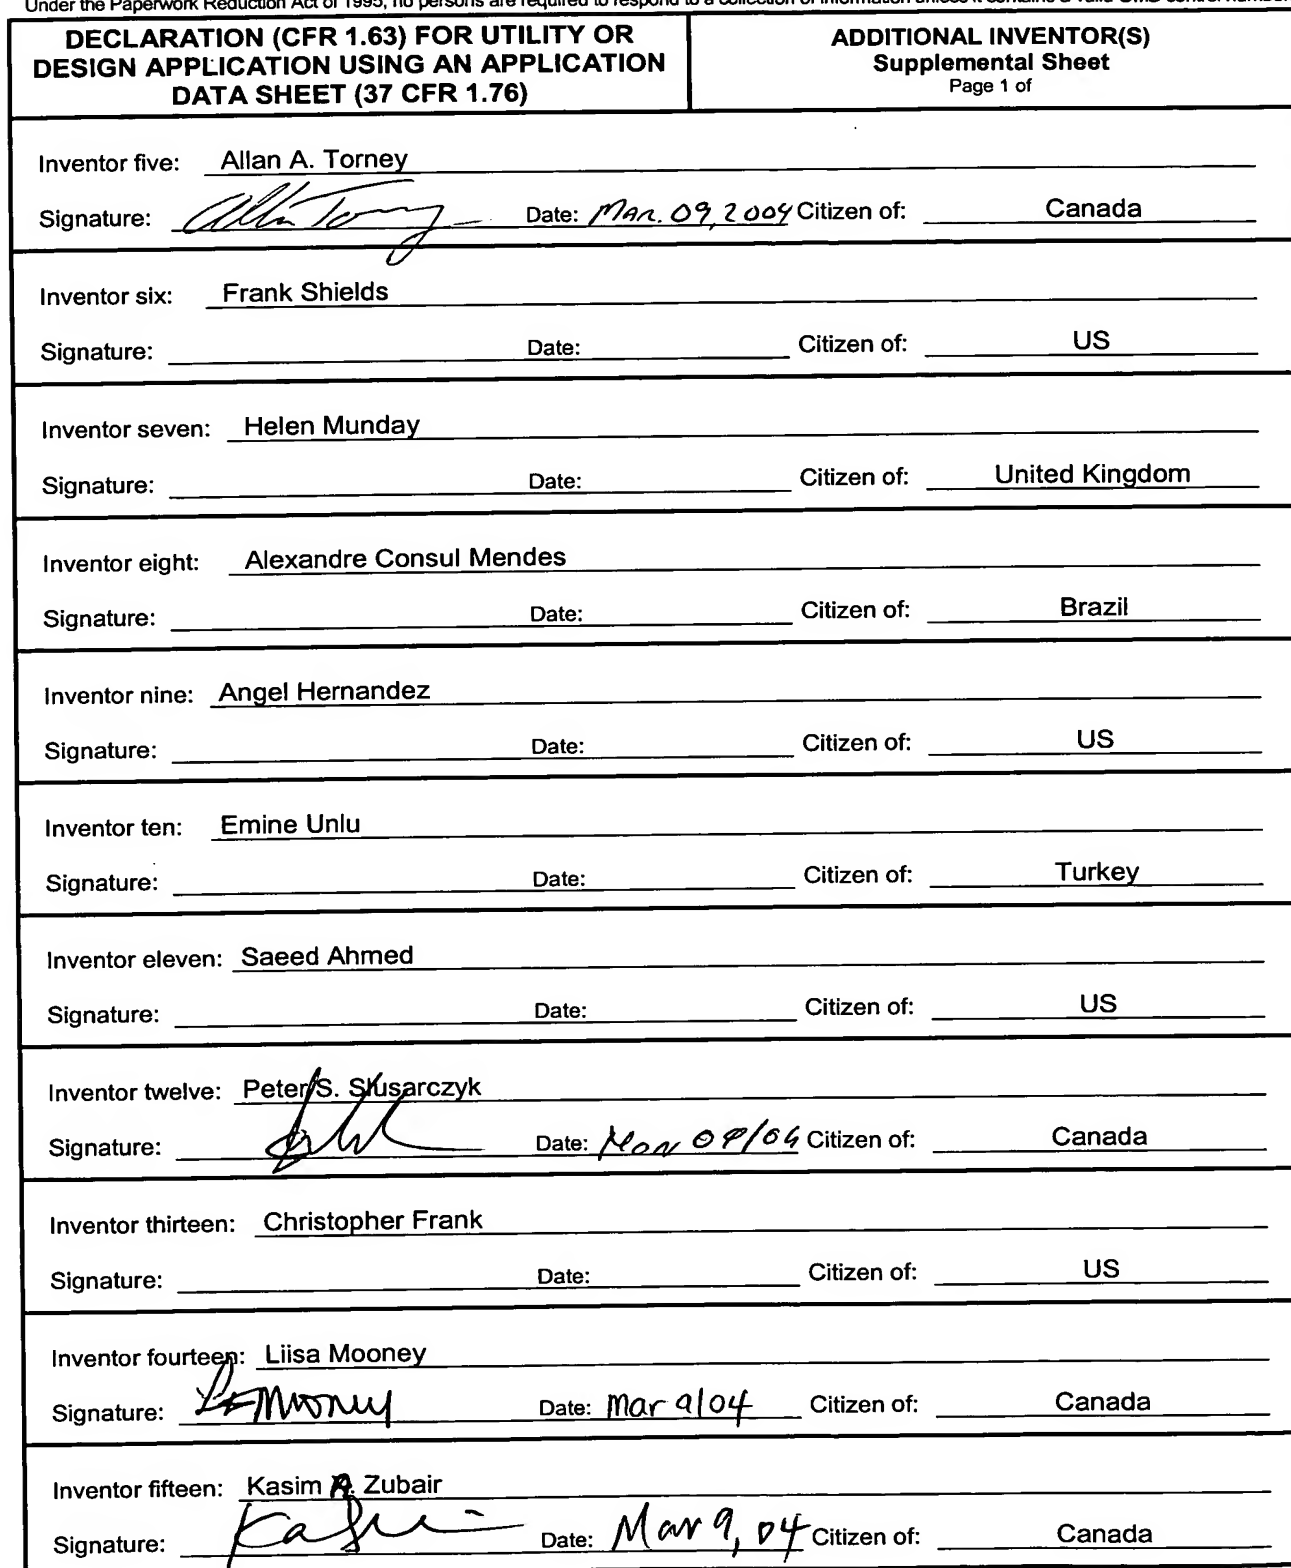 Under the Paperwork Reduction Act of 1995, no persons are required to respond to a collection of information unless it contains a valid OMB control number
DECLARATION (CFR 1.63) FOR UTILITY OR
DESIGN APPLICATION USING AN APPLICATION
DATA SHEET (37 CFR 1.76)
ADDITIONAL INVENTOR(S)
Supplemental Sheet
Page 1 of
Inventor five: Allan A. Torney
Signature: Date: Mar. 09, 2004 Citizen of: Canada
Inventor six: Frank Shields
Signature: Date: Citizen of: US
Inventor seven: Helen Munday
Signature: Date: Citizen of: United Kingdom
Inventor eight: Alexandre Consul Mendes
Signature: Date: Citizen of: Brazil
Inventor nine: Angel Hernandez
Signature: Date: Citizen of: US
Inventor ten: Emine Unlu
Signature: Date: Citizen of: Turkey
Inventor eleven: Saeed Ahmed
Signature: Date: Citizen of: US
Inventor twelve: Peter S. Slusarczyk
Signature: Date: Citizen of: Canada
Inventor thirteen: Christopher Frank
Signature: Date: Citizen of: US
Inventor fourteen: Liisa Mooney
Signature: Date: Mar 9/04 Citizen of: Canada
Inventor fifteen: Kasim A. Zubair
Signature: Date: Mar 9, 04 Citizen of: Canada